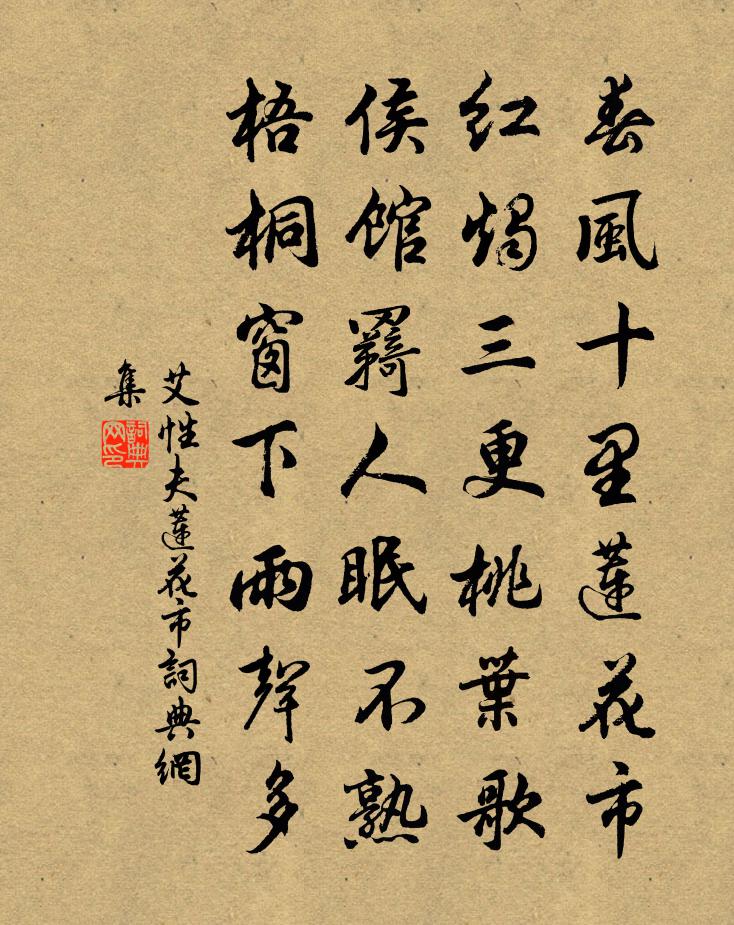 春風十里蓮花市
紅燭三更桃葉歌
侯館羇人眠不熟
梧桐窗下雨聲多
艾性夫蓮花市詞典網
集
詞典
网印